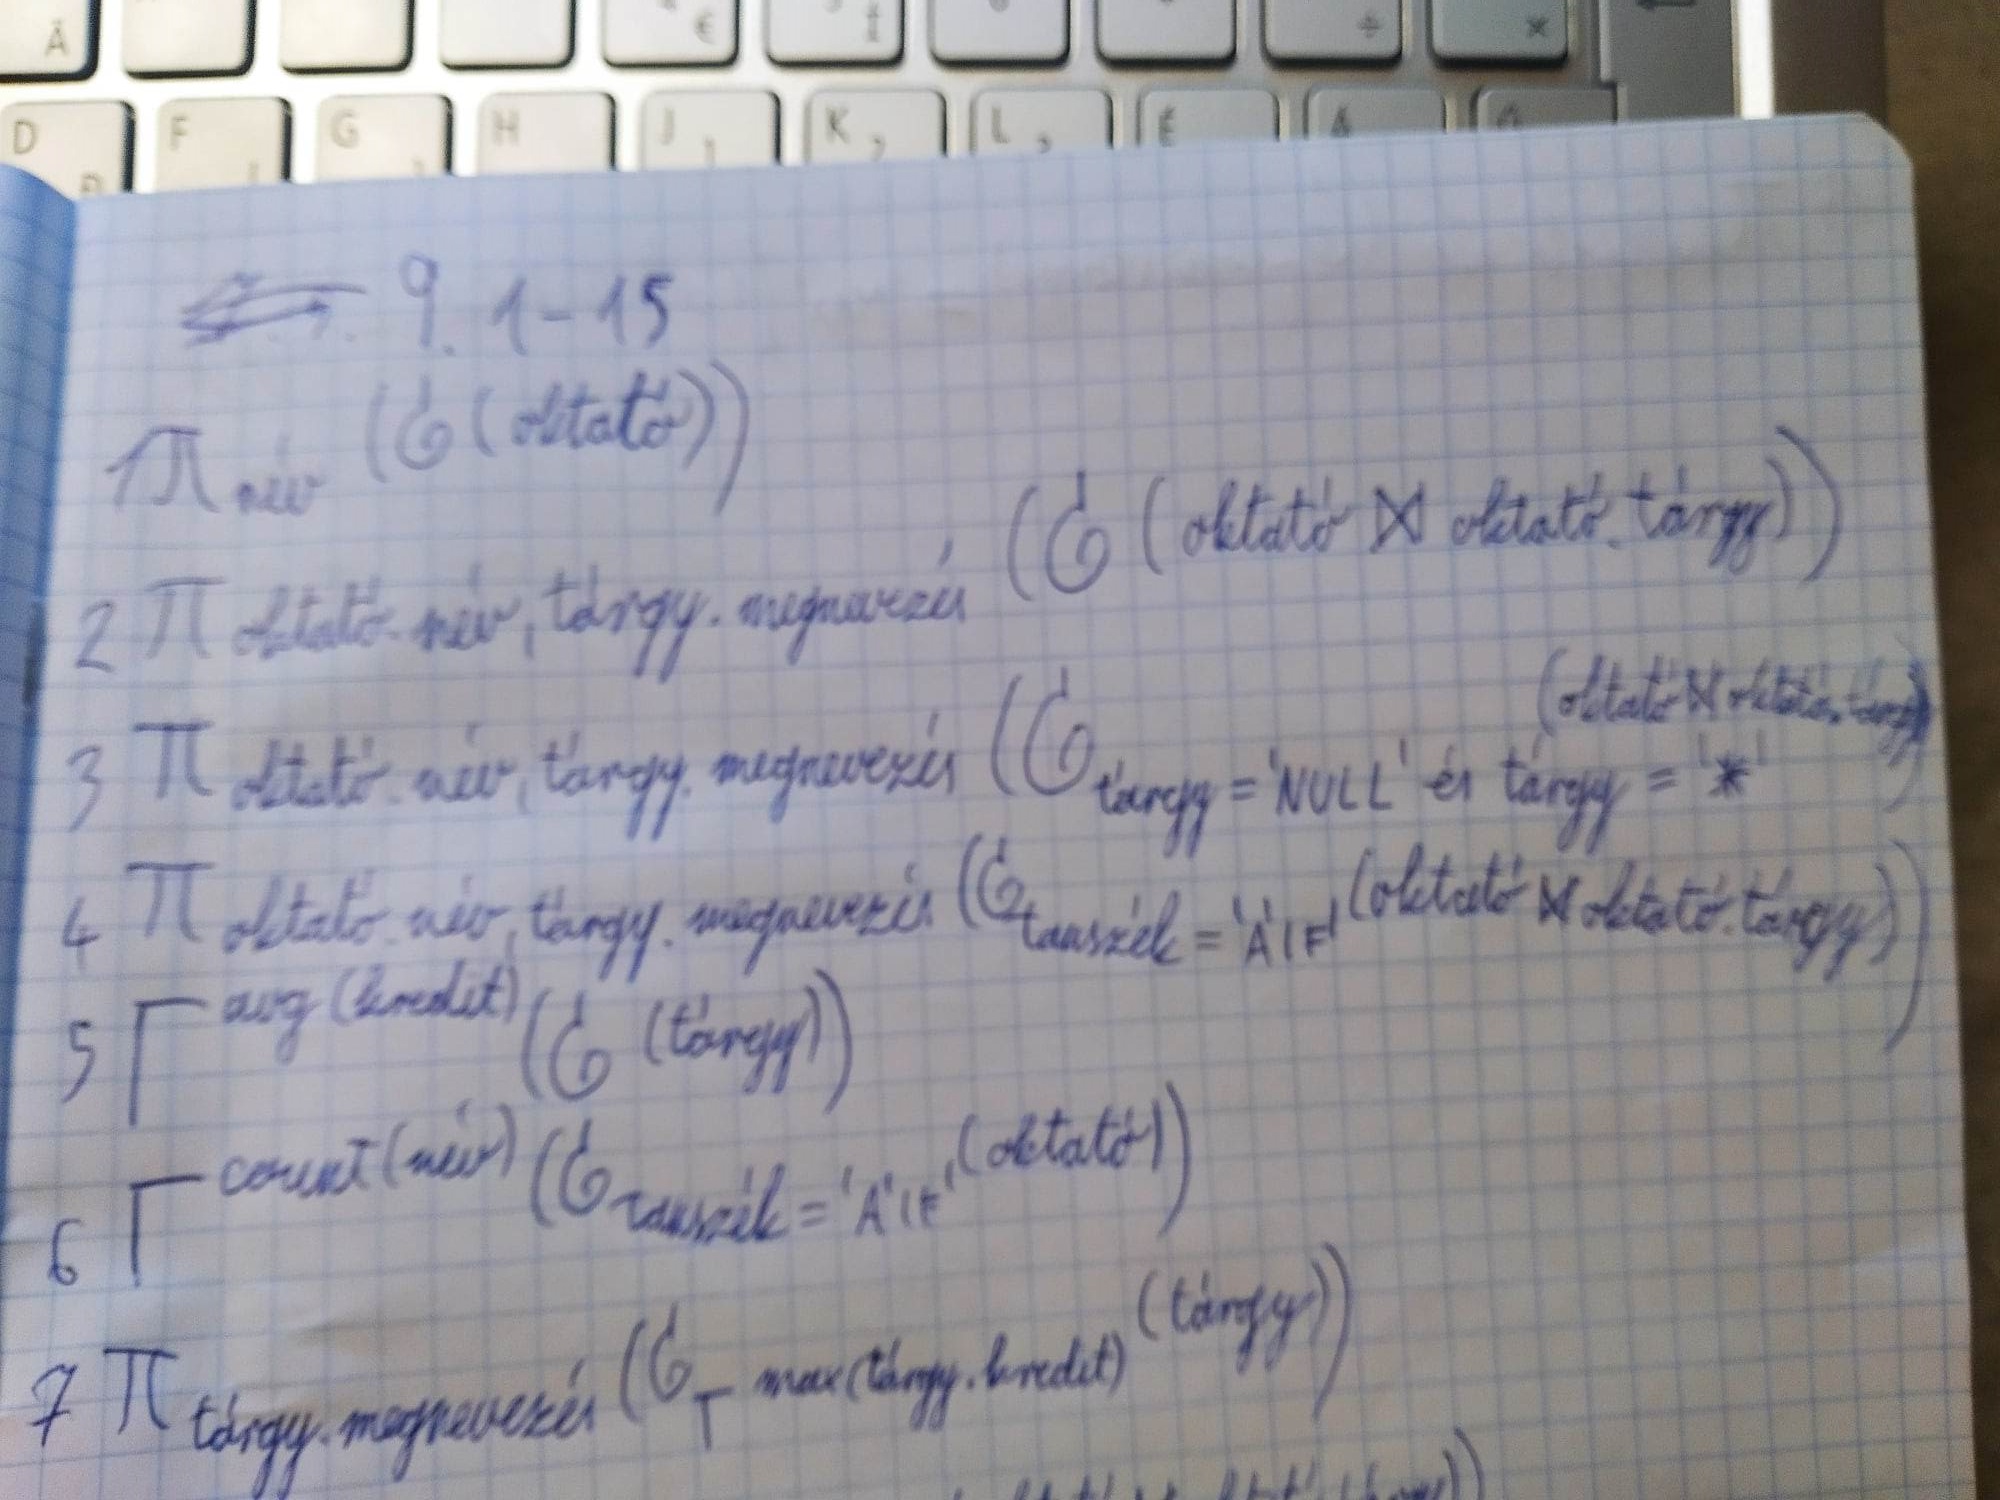 Ä € Í ÷ ×
D F G H J K L É Á
9. 1-15
1 π név (σ (oktató))
2 π oktató.név, tárgy.megnevezés (σ (oktató ⋈ oktató.tárgy))
3 π oktató.név, tárgy.megnevezés (σ tárgy = 'NULL' és tárgy = '*' (oktató ⋈ oktató.tárgy))
4 π oktató.név, tárgy.megnevezés (σ tanszék = 'AIF' (oktató ⋈ oktató.tárgy))
5 Γ avg (kredit) (σ (tárgy))
6 Γ count (név) (σ tanszék = 'AIF' (oktató))
7 π tárgy.megnevezés (σ Γ max (tárgy.kredit) (tárgy))